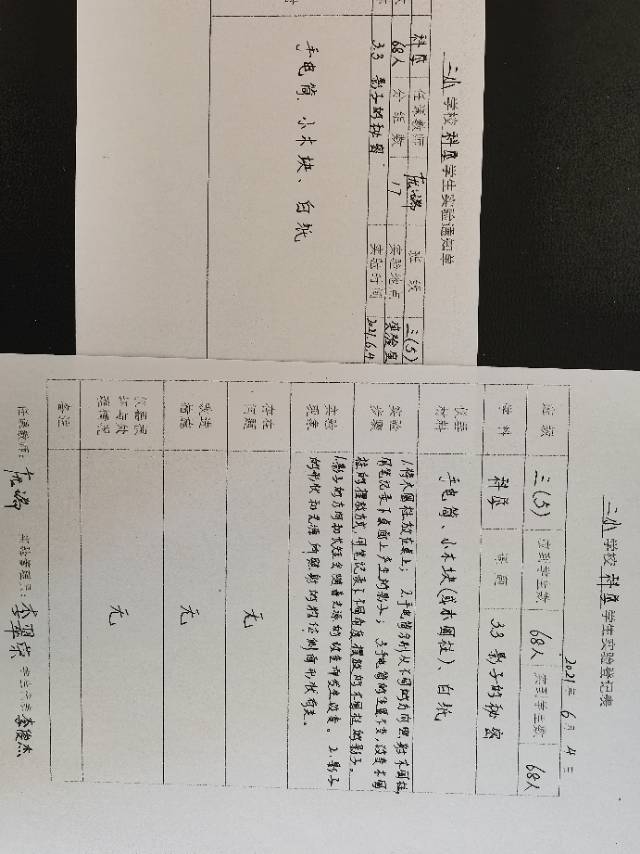 二小学校科学学生实验通知单
科学 任课教师 班级 三(5)
68人 分组数 17 实验地点 实验室
3.3 影子的秘密 实验时间 2021.6.4
手电筒、小木块、白纸
二小学校科学学生实验登记表
2021年6月4日
班级 三(5) 应到学生数 68人 实到学生数 68人
学科 科学 课题 3.3 影子的秘密
仪器材料 手电筒、小木块(或木圆柱)、白纸
实验步骤
1.将木圆柱放在桌上; 2.手电筒分别从不同的方向照射木圆柱,
用笔记录下桌面上产生的影子; 3.手电筒的位置不变,改变木圆
柱的摆放方式,用笔记录下不同角度摆放的木圆柱的影子。
实验现象
1.影子的方向和长短会随着光源的改变而发生改变。 2.影子
的形状和光源所照射的物体侧面形状有关。
存在问题 无
改进措施 无
仪器损坏与处理情况 无
备注
任课教师: 实验管理员:李翠荣 学生代表 李俊杰